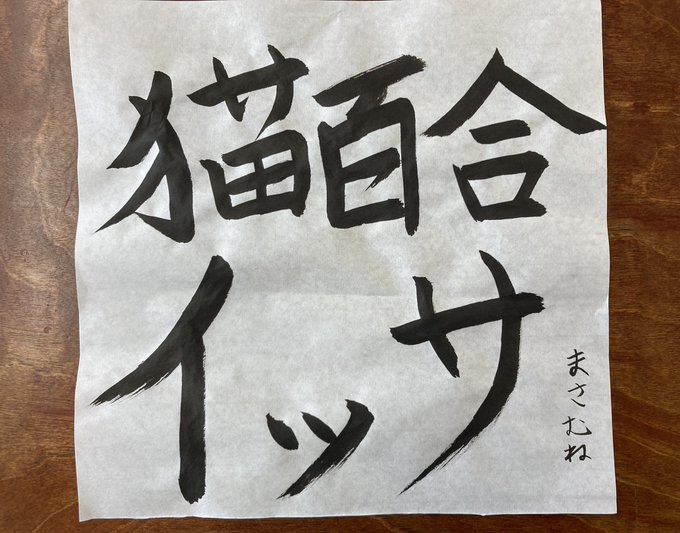 猫百合
イッサ
まさむね